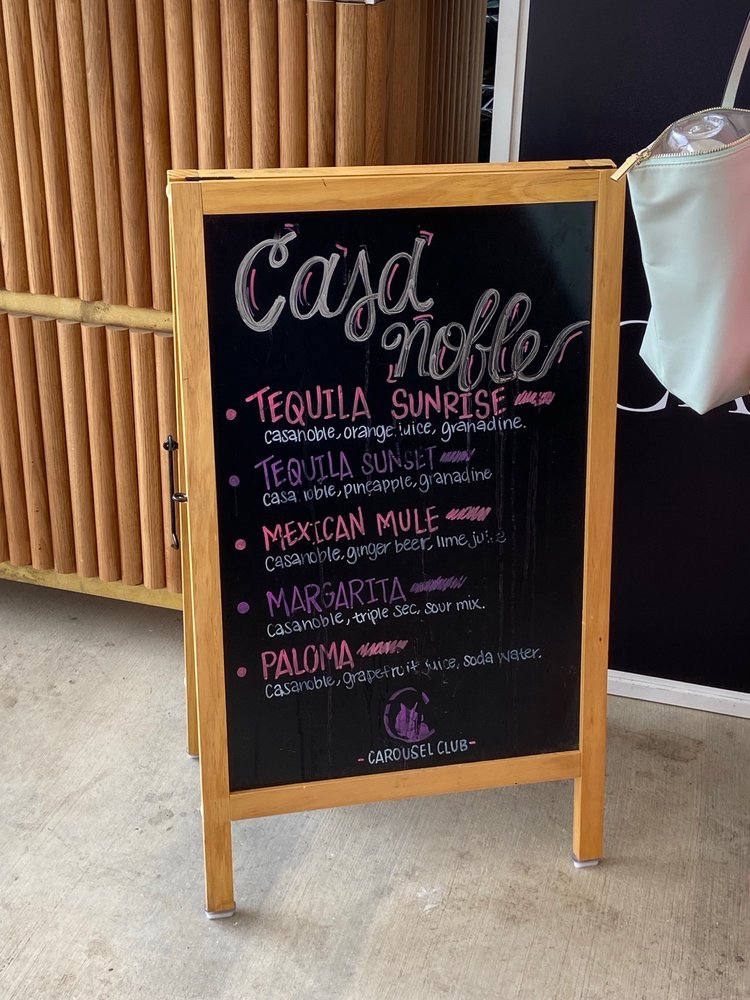 Casa
noble
TEQUILA SUNRISE
casanoble, orange juice, granadine.
TEQUILA SUNSET
casa noble, pineapple, granadine
MEXICAN MULE
casanoble, ginger beer, lime juice
MARGARITA
casanoble, triple sec, sour mix.
PALOMA
casanoble, grapefruit juice, soda water.
- CAROUSEL CLUB -